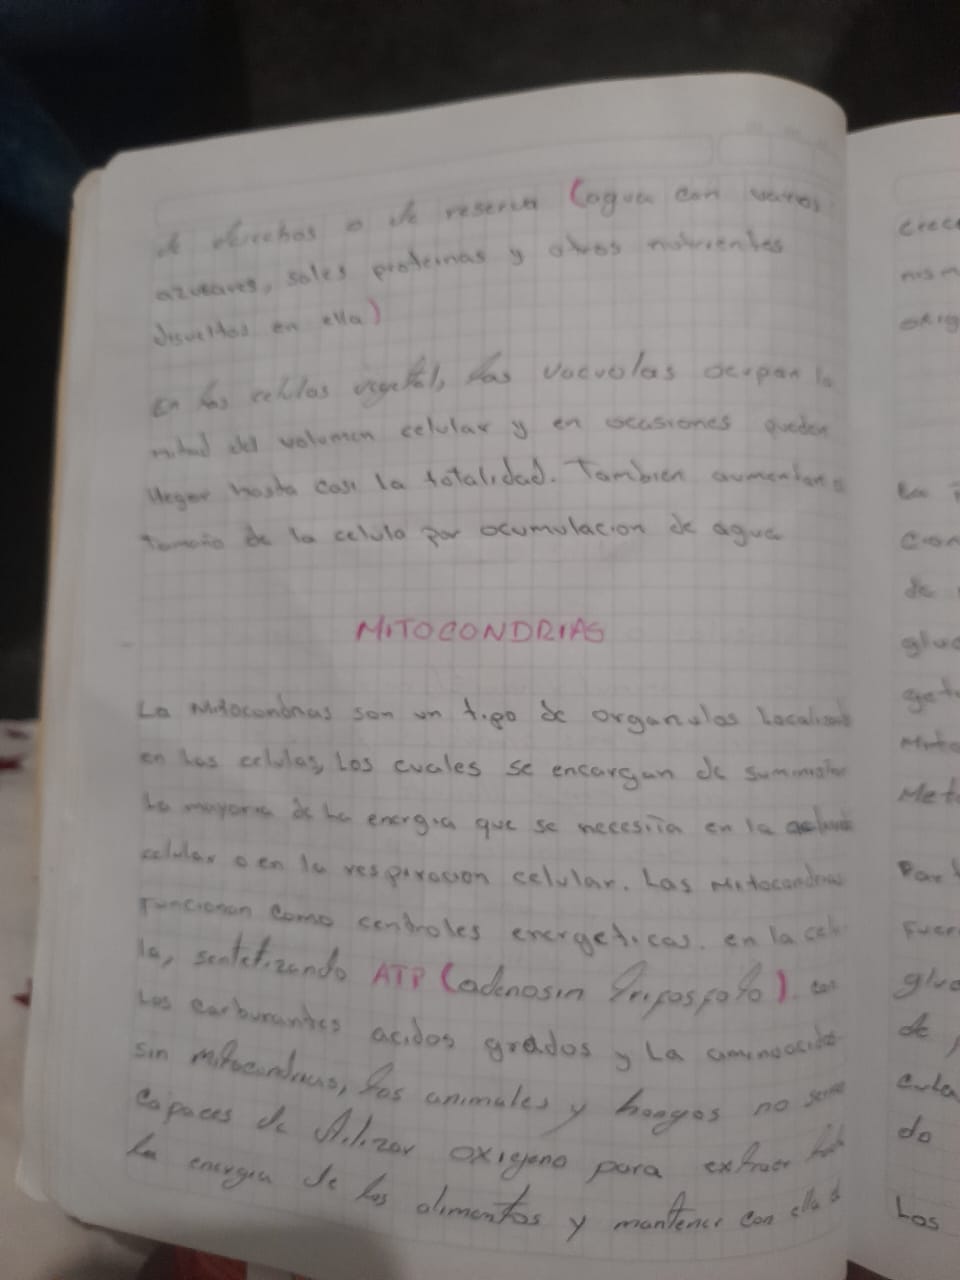 de derechos o de reserva (agua con varios
azucares, sales proteinas y otros nutrientes
disueltos en ella)
En las celulas vegetal, las vacuolas ocupan la
mitad del volumen celular y en ocasiones pueden
llegar hasta casi la totalidad. Tambien aumentan
tamaño de la celula por acumulacion de agua
MITOCONDRIAS
La Mitocondrias son un tipo de organulos Localizad
en las celulas, Los cuales se encargan de
La mayoria de la energia que se necesita en la
celular o en la respiracion celular. Las Mitocondrias
Funcionan como centrales energeticas. en la celu
la, sentetizando ATP (adenosin Trifosfato). con
Los carburantes acidos grados y La aminoacido
sin Mitocondrias, los animales y hongos no
capaces de utilizar oxigeno para extraer
La energia de los alimentos y mantener con ella
crec
nism
orig
En
Cion
de
gluc
get
Mito
Met
Part
Fuer
gluc
de
do
Los